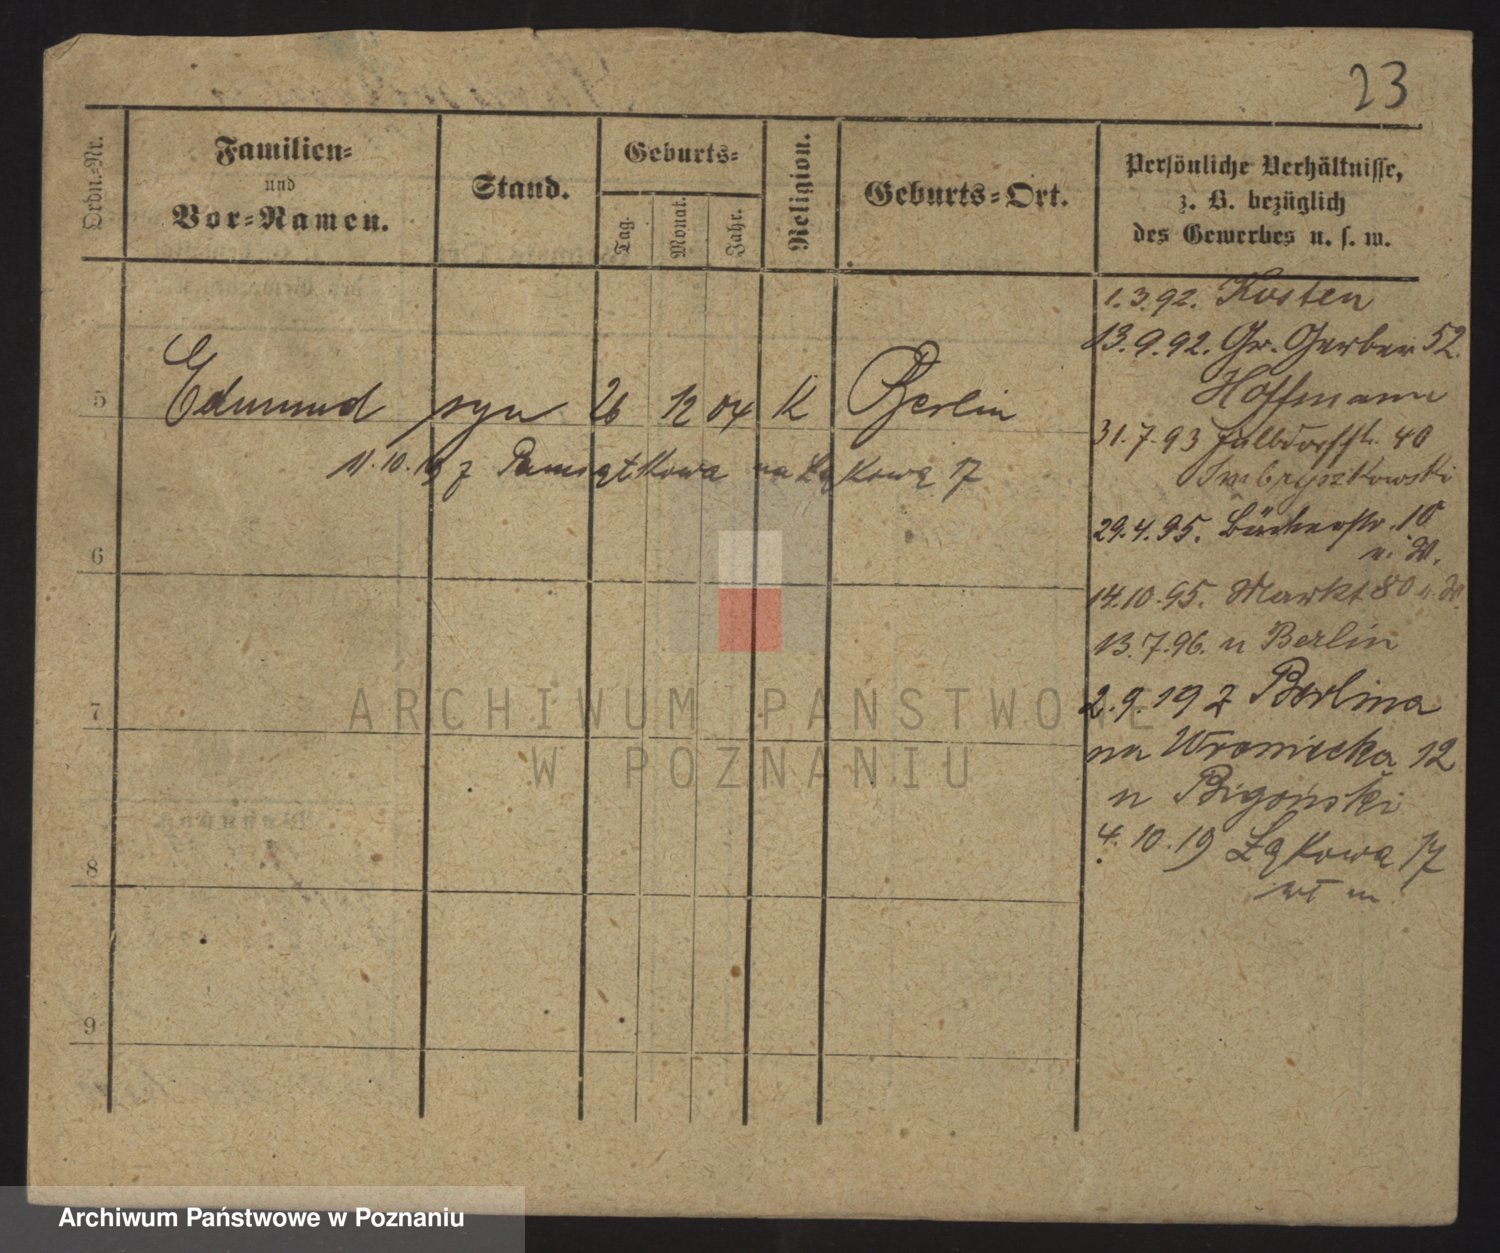 23
Ordn.-Nr.
Familien-
und
Vor-Namen.
Stand.
Geburts-
Tag.
Monat.
Jahr.
Religion.
Geburts-Ort.
Persönliche Verhältnisse,
z. B. bezüglich
des Gewerbes u. s. w.
5 Edmund syn 26 12 04 K Berlin
11.10.19 z Pamiątkowa na Łąkową 17
6
7
8
9
1.3.92. Kosten
13.9.92. Gr. Gerber 52.
Hoffmann
31.7.93 40
29.4.95. Bäckerstr. 10
14.10.95. Markt 80
13.7.96. n Berlin
2.9.19 z Berlina
na Wroniecką 12
u
4.10.19 Łąkowa 17
ARCHIWUM PAŃSTWOWE
W POZNANIU
Archiwum Państwowe w Poznaniu